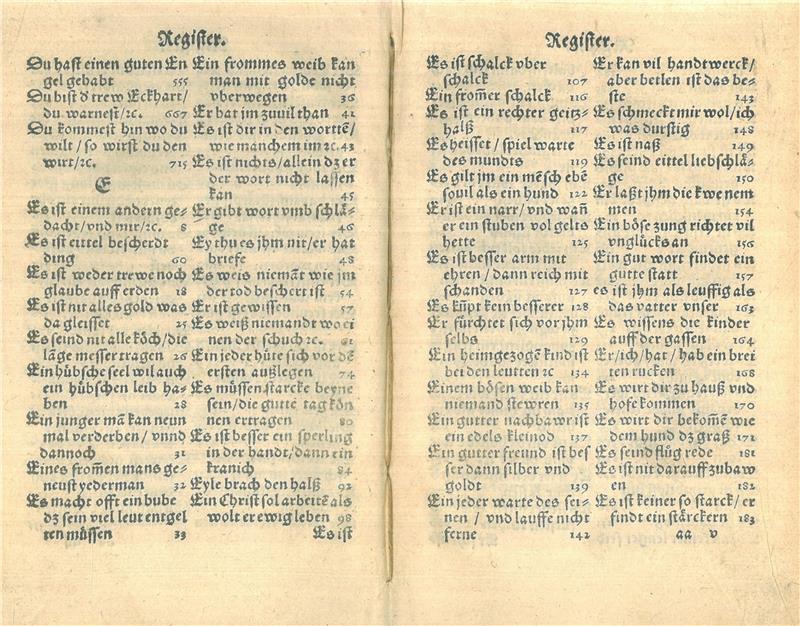 Register.
Du hast einen guten En
gel gehabt 555
Du bist d͛ trew Eckhart/
du warnest/ꝛc. 667
Du kommest hin wo du
wilt/so wirst du den
wirt/ꝛc. 715
E
Es ist einem andern ge-
dacht/vnd mir/ꝛc. 8
Es ist eittel bescherdt
ding 60
Es ist weder trewe noch
glaube auff erden 18
Es ist nit alles gold was
da gleisset 25
Es seind nit alle köch/die
lāge messer tragen 26
Ein hübsche seel wil auch
ein hübschen leib ha-
ben 28
Ein junger mā kan neun
mal verderben/vnnd
dannoch 31
Eines from̄en mans ge-
neust yederman 32
Es macht offt ein bube
dz sein viel leut entgel
ten müssen 33
Ein frommes weib kan
man mit golde nicht
vberwegen 36
Er hat jm zuuil than 41
Es ist dir in den wortē/
wie manchem im ꝛc. 43
Es ist nichts/allein dz er
der wort nicht lassen
kan 45
Er gibt wort vmb schlä-
ge 46
Ey thu es jhm nit/er hat
briefe 48
Es weis niemāt wie jm
der tod beschert ist 54
Er ist gewissen 57
Es weiß niemandt wo ei
nen der schuch ꝛc. 61
Ein jeder hüte sich vor dē
ersten außlegen 74
Es müssen starcke beyne
sein/die gutte tag kön
nen ertragen 80
Es ist besser ein sperling
in der handt/dann ein
kranich 84
Eyle brach den halß 92
Ein Christ sol arbeitē als
wolt er ewig leben 98
Es ist
Register.
Es ist schalck vber
schalck 107
Ein from̄er schalck 116
Es ist ein rechter geitz-
halß 117
Es heisset/spiel warte
des mundts 119
Es gilt jm ein mēsch ebē
souil als ein hund 122
Er ist ein narr/vnd wan̄
er ein stuben vol gelts
hette 125
Es ist besser arm mit
ehren/dann reich mit
schanden 127
Es kūpt kein besserer 128
Er fürchtet sich vor jhm
selbs 129
Ein heimgezogē kind ist
bei den leutten ꝛc 134
Einem bösen weib kan
niemand stewren 135
Ein gutter nachbawr ist
ein edels kleinod 137
Ein gutter freund ist bes
ser dann silber vnd
goldt 139
Ein jeder warte des sei-
nen/vnd lauffe nicht
ferne 142
Er kan vil handtwerck/
aber betlen ist das be-
ste 143
Es schmeckt mir wol/ich
was durstig 148
Es ist naß 149
Es seind eittel liebschlä-
ge 150
Er laßt jhm die kwe nem
men 154
Ein böse zung richtet vil
vnglücks an 156
Ein gut wort findet ein
gutte statt 157
es ist jhm als leuffig als
das vatter vnser 163
Es wissens die kinder
auff der gassen 164
Er/ich/hat/hab ein brei
ten rucken 168
Es wirt dir zu hauß vnd
hofe kommen 170
Es wirt dir bekom̄en wie
dem hund dz graß 171
Es seind flüg rede 181
Es ist nit darauff zubaw
en 182
Es ist keiner so starck/er
findt ein stärckern 183
aa v